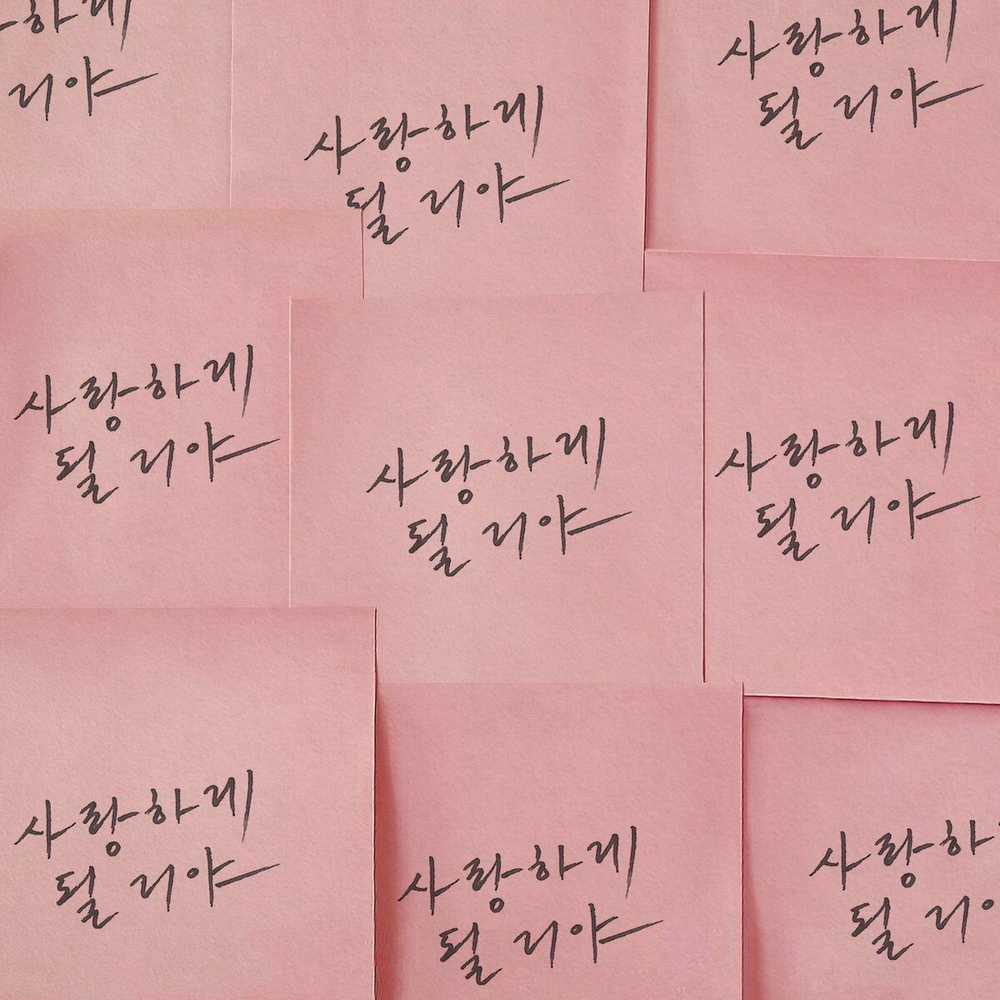 하게
리야
사랑하게
될 리야
사랑하게
될 리야
사랑하게
될 리야
사랑하게
될 리야
사랑하게
될 리야
사랑하게
될 리야
사랑하게
될 리야
사랑하
될 리